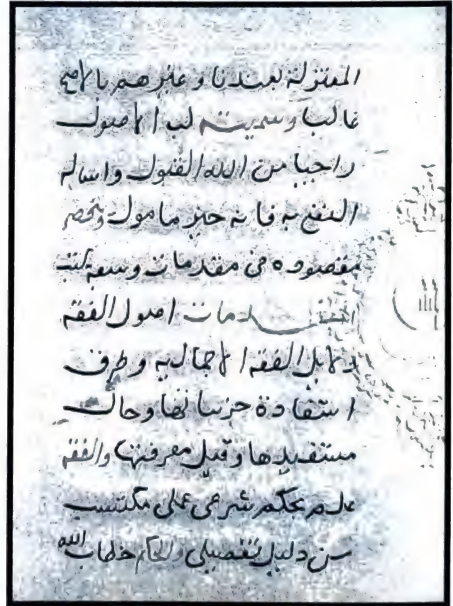 المعتزلة بعندنا وغيرهم بالاصح
غالبا وسميته لب الاصول
راجيا من الله القبول واساله
النفع به فانه خير مامول وينحصر
مقصوده في مقدمات وسبعة كتب
المقدمات اصول الفقه
دلايل الفقه الاجمالية وطرق
استفادة جزئياتها وحال
مستفيدها وقيل معرفتها والفقه
علم بحكم شرعي عملي مكتسب
من دليل تفصيلي والحكم خطاب الله